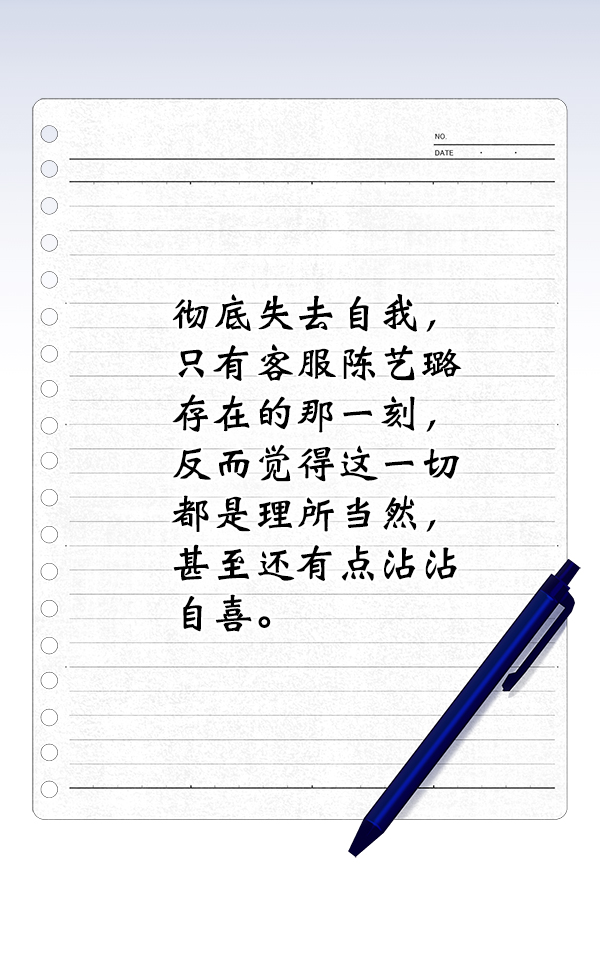 NO.
DATE
彻底失去自我，
只有客服陈艺璐
存在的那一刻，
反而觉得这一切
都是理所当然，
甚至还有点沾沾
自喜。